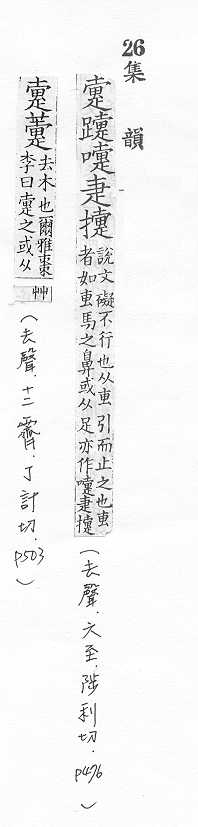 26 集韻
疐嚔疌
說文礙不行也从叀引而止之也叀
者如叀馬之鼻或从足亦作嚔疌
(去聲.六至.陟利切.p476)
疐
去木也爾雅棗
李曰疐之或从艸
(去聲.十二霽.丁計切.p503)